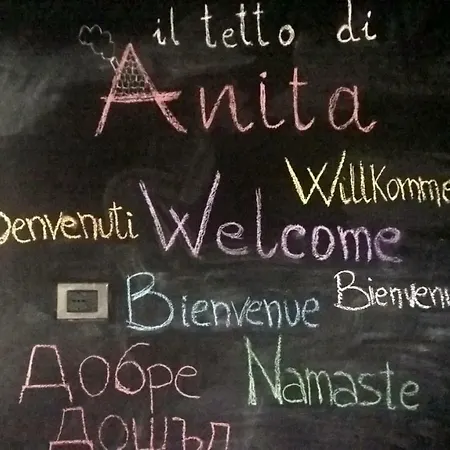 il tetto di
Anita
Willkomme
benvenuti
Welcome
Bienvenue
Bienvenu
Добре
Дошъл
Namaste